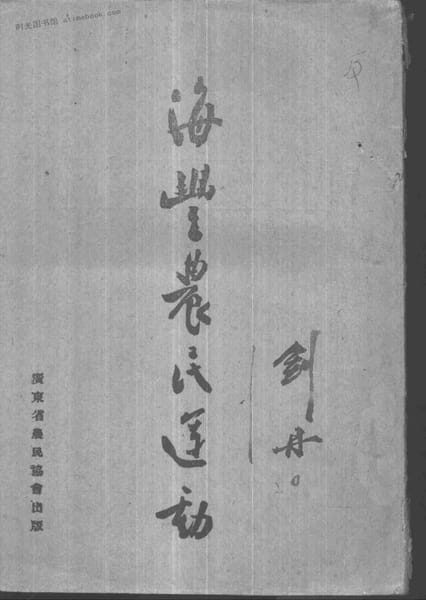 时光图书馆 atimebook.com
海豐農民運動
劍丹。
廣東省農民協會出版